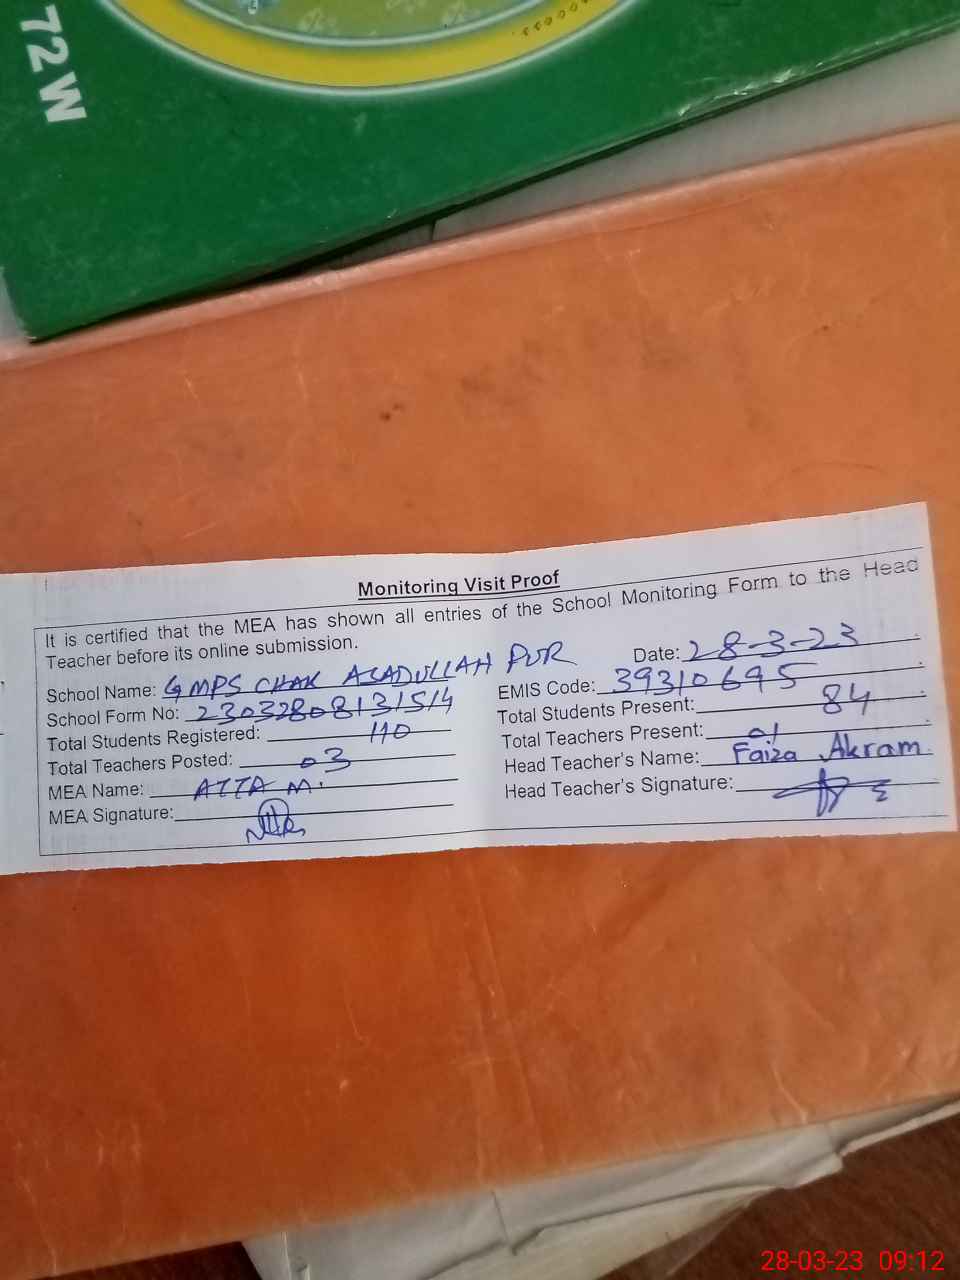 72W
Monitoring Visit Proof
It is certified that the MEA has shown all entries of the School Monitoring Form to the Head
Teacher before its online submission.
Date: 28-3-23
School Name: GMPS CHAK ASADULLAH PUR
EMIS Code: 39310695
School Form No: 23032808131514
Total Students Present: 84
Total Students Registered: 110
Total Teachers Present: 01
Total Teachers Posted: 03
Head Teacher's Name: Faiza Akram
MEA Name: ATTA M.
Head Teacher's Signature:
MEA Signature:
28-03-23 09:12